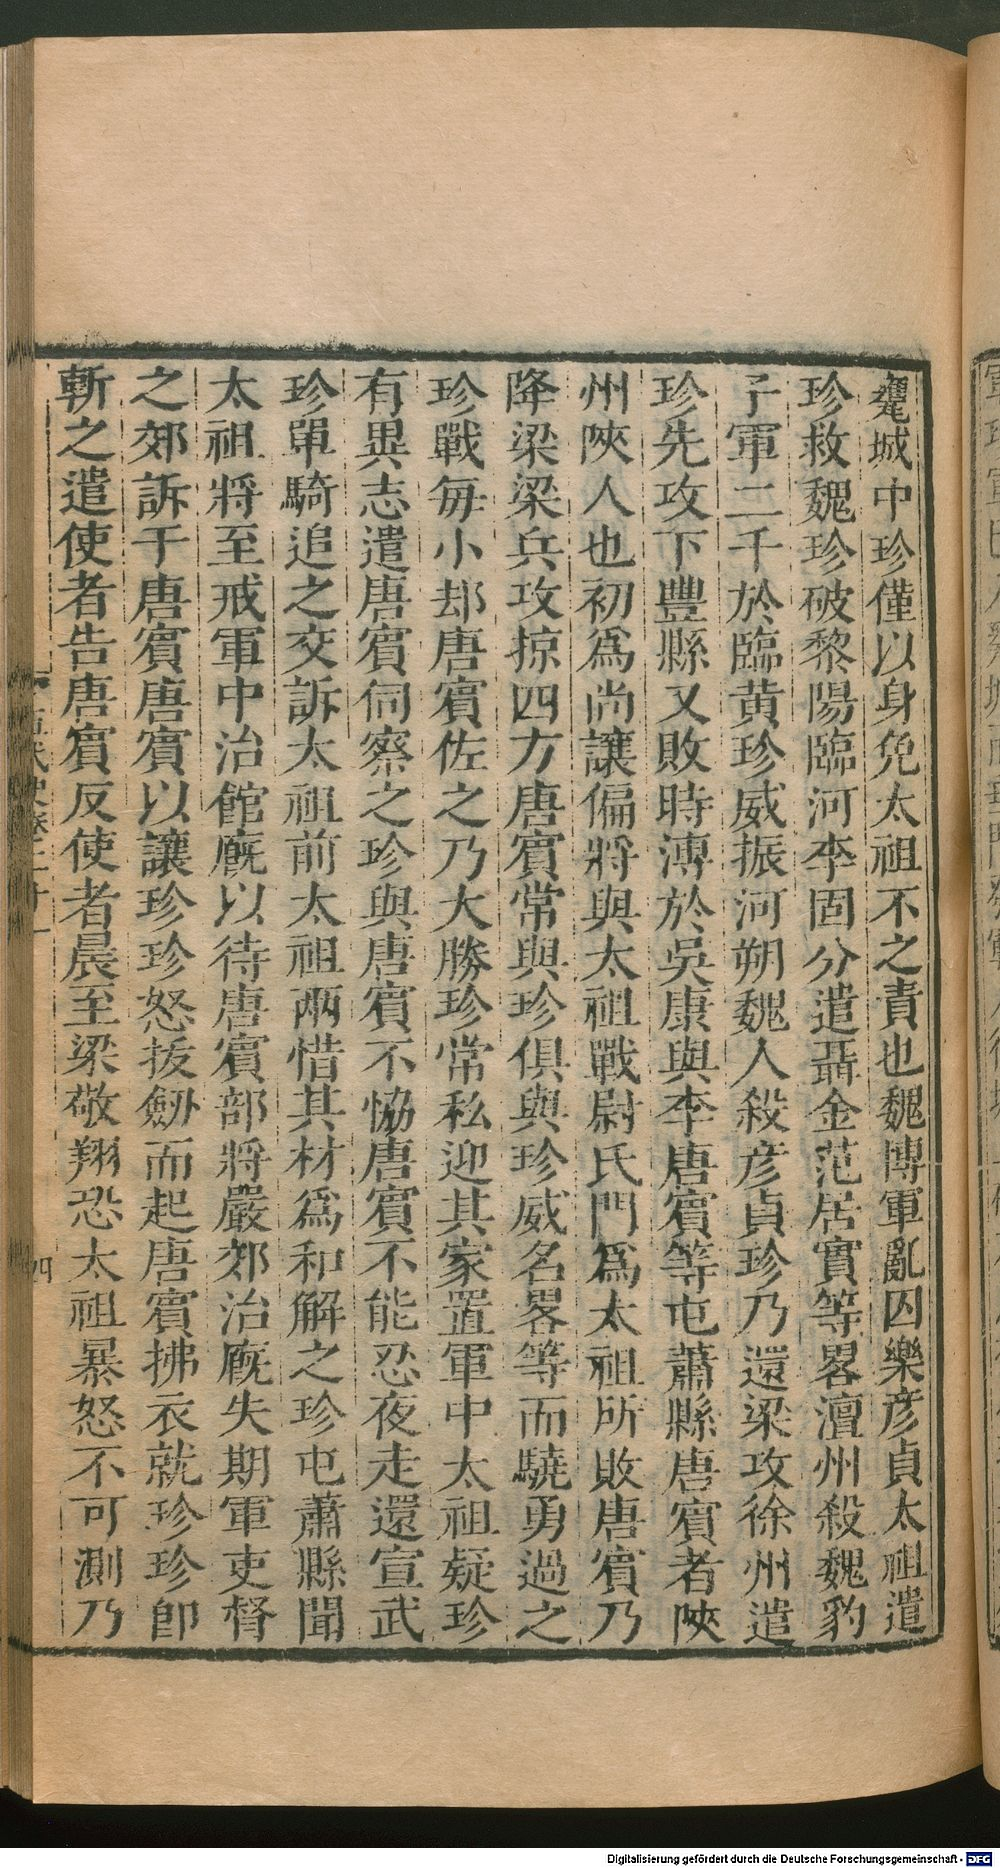 甕城中珍僅以身免太祖不之責也魏博軍亂囚樂彦貞太祖遣
珍救魏珍破黎陽臨河李固分遣聶金范居實等畧澶州殺魏豹
子軍二千於臨黄珍威振河朔魏人殺彦貞珍乃還梁攻徐州遣
珍先攻下豐縣又敗時溥於吳康與李唐賓等屯蕭縣唐賓者陜
州陜人也初爲尚讓偏將與太祖戰尉氏門爲太祖所敗唐賓乃
降梁梁兵攻掠四方唐賓常與珍俱與珍威名畧等而驍勇過之
珍戰毎小却唐賓佐之乃大勝珍常私迎其家置軍中太祖疑珍
有異志遣唐賓伺察之珍與唐賓不恊唐賓不能忍夜走還宣武
珍單騎追之交訴太祖前太祖兩惜其材爲和解之珍屯蕭縣聞
太祖將至戒軍中治館廐以待唐賓部將嚴郊治廐失期軍吏督
之郊訴于唐賓唐賓以讓珍珍怒拔劔而起唐賓拂衣就珍珍即
斬之遣使者告唐賓反使者晨至梁敬翔恐太祖暴怒不可測乃
四
Digitalisierung gefördert durch die Deutsche Forschungsgemeinschaft - DFG